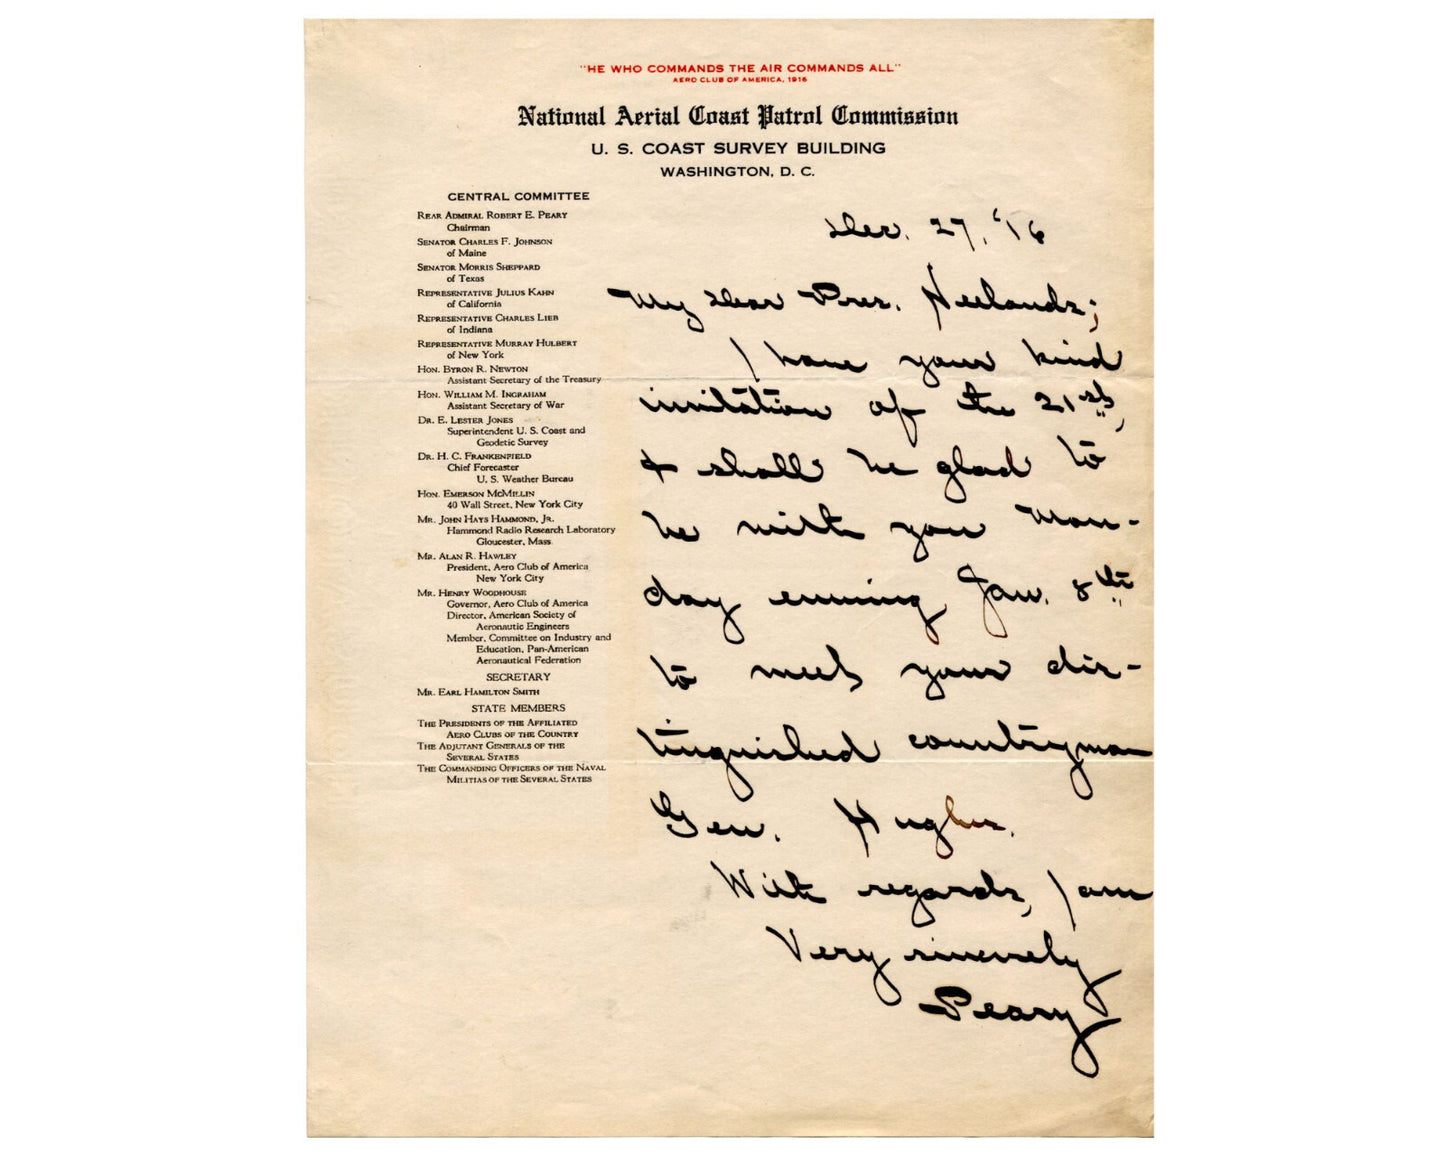 "HE WHO COMMANDS THE AIR COMMANDS ALL"
AERO CLUB OF AMERICA, 1916
National Aerial Coast Patrol Commission
U. S. COAST SURVEY BUILDING
WASHINGTON, D. C.
CENTRAL COMMITTEE
REAR ADMIRAL ROBERT E. PEARY
Chairman
SENATOR CHARLES F. JOHNSON
of Maine
SENATOR MORRIS SHEPPARD
of Texas
REPRESENTATIVE JULIUS KAHN
of California
REPRESENTATIVE CHARLES LIEB
of Indiana
REPRESENTATIVE MURRAY HULBERT
of New York
HON. BYRON R. NEWTON
Assistant Secretary of the Treasury
HON. WILLIAM M. INGRAHAM
Assistant Secretary of War
DR. E. LESTER JONES
Superintendent U. S. Coast and
Geodetic Survey
DR. H. C. FRANKENFIELD
Chief Forecaster
U. S. Weather Bureau
HON. EMERSON MCMILLIN
40 Wall Street, New York City
MR. JOHN HAYS HAMMOND, JR.
Hammond Radio Research Laboratory
Gloucester, Mass.
MR. ALAN R. HAWLEY
President, Aero Club of America
New York City
MR. HENRY WOODHOUSE
Governor, Aero Club of America
Director, American Society of
Aeronautic Engineers
Member, Committee on Industry and
Education, Pan-American
Aeronautical Federation
SECRETARY
MR. EARL HAMILTON SMITH
STATE MEMBERS
THE PRESIDENTS OF THE AFFILIATED
AERO CLUBS OF THE COUNTRY
THE ADJUTANT GENERALS OF THE
SEVERAL STATES
THE COMMANDING OFFICERS OF THE NAVAL
MILITIAS OF THE SEVERAL STATES
Dec. 27, '16
My dear Pres. Neelands;
I have your kind
invitation of the 21st,
& shall be glad to
be with you Mon-
day evening Jan. 8th
to meet your dis-
tinguished countryman
Gen. Hughes.
With regards, I am
Very sincerely
Peary